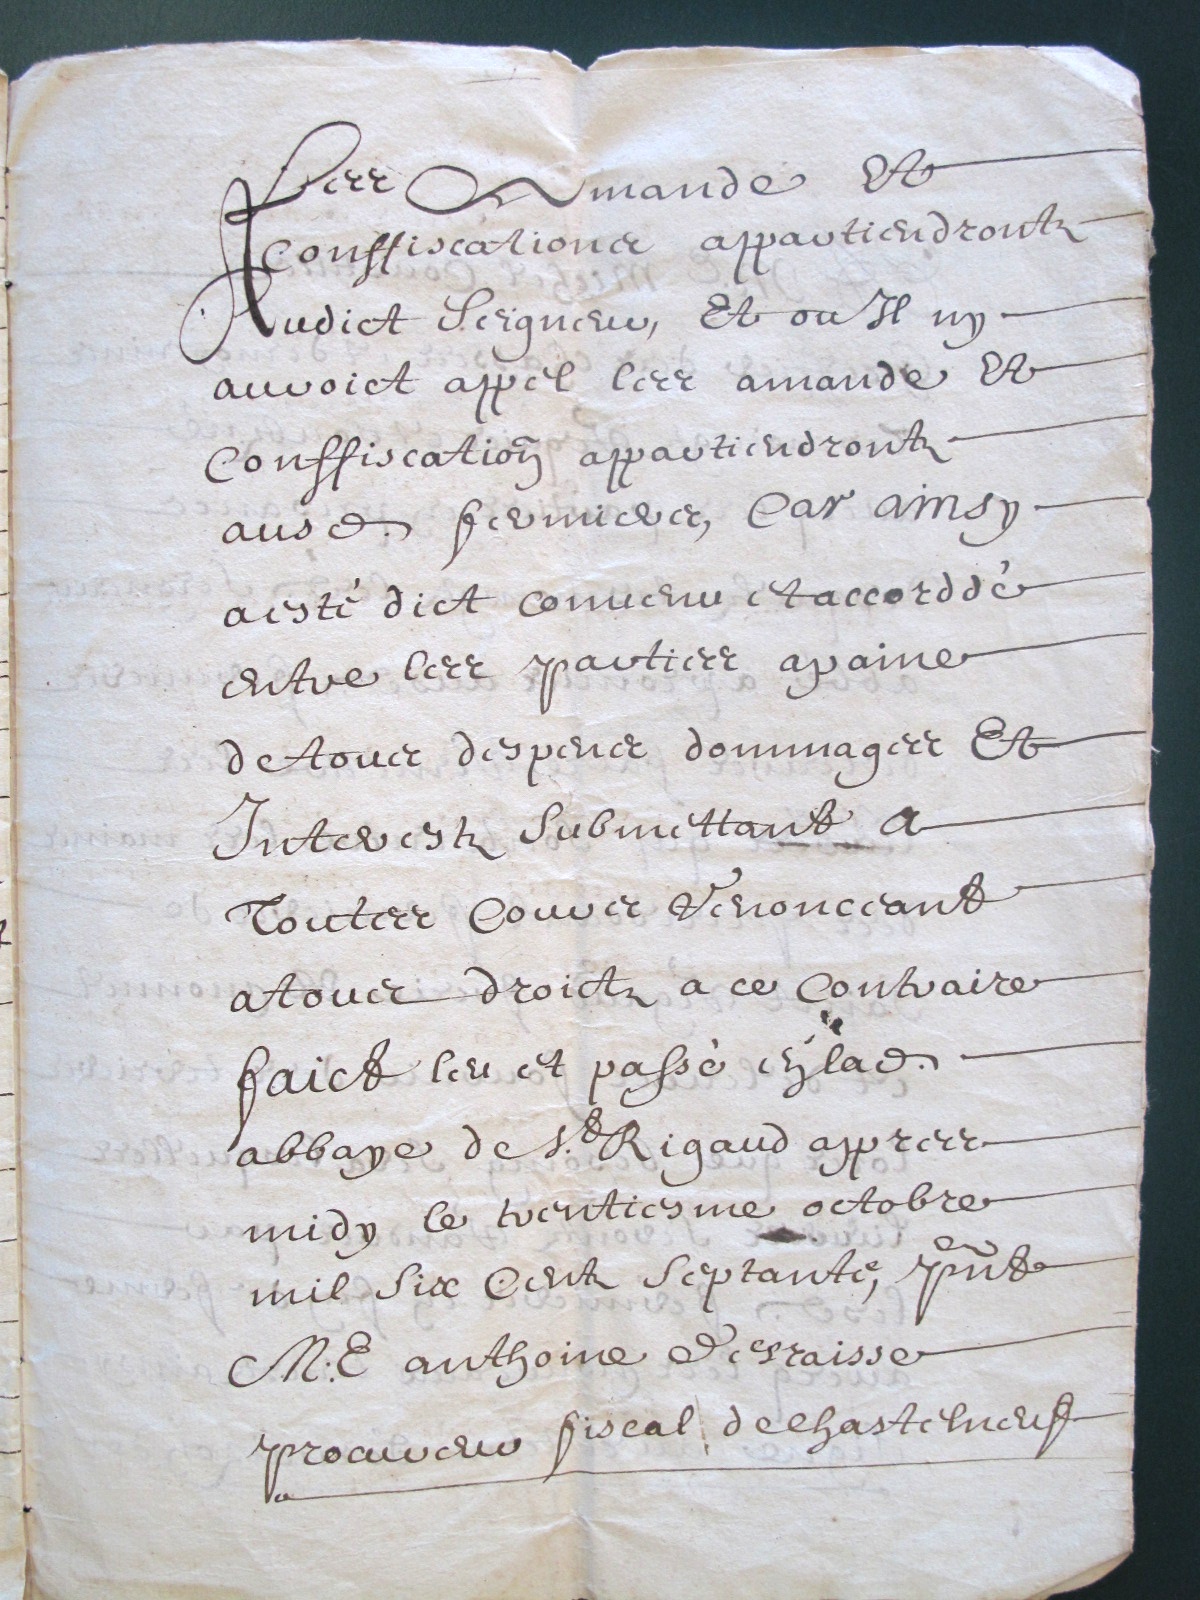 Les Amande Et
Conffiscations appartiendrontz
Audict Seigneur, Et ou Il ny
auroict appel les amande Et
Conffiscation appartiendrontz
ausd. fermiers, Car ainsy
a esté dict conuenu et accorddé
entre les parties apaine
de tous despens dommages Et
Interestz Submettant A
Toutes Cours Renonceant
a tous droictz a ce Contraire
faict leu et passé en lad.
abbaye de St Rigaud appres
midy le trentiesme octobre
mil Six Centz Septante, pnt
M.E anthoine desraisse
procureur fiscal de Chastelneuf